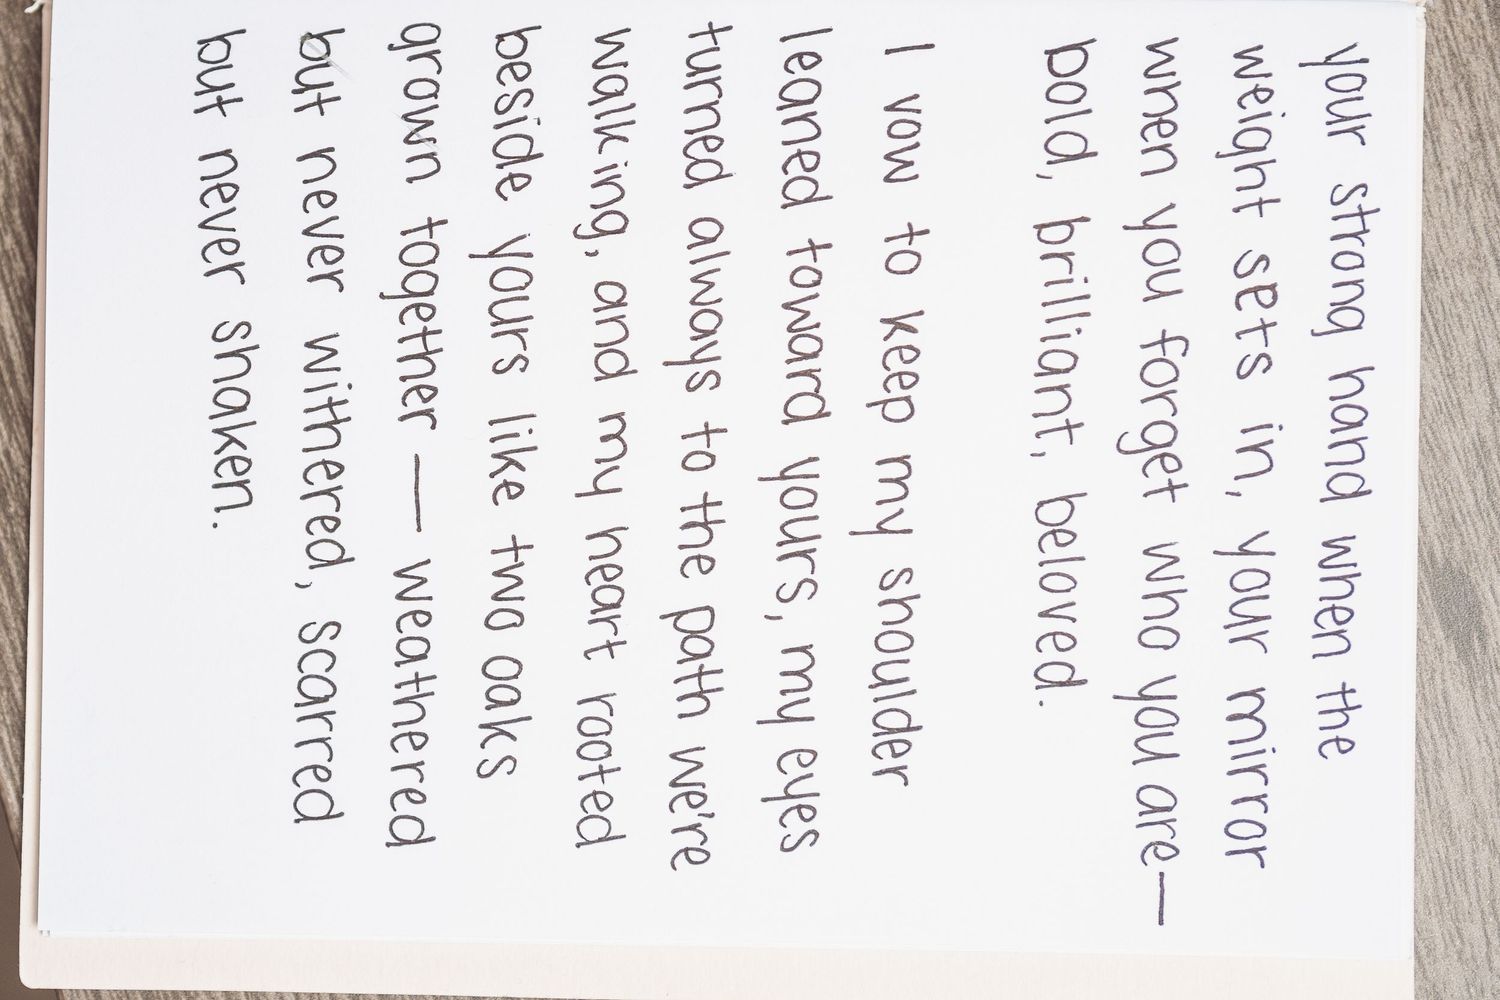 your strong hand when the
weight sets in, your mirror
when you forget who you are—
bold, brilliant, beloved.
I vow to keep my shoulder
leaned toward yours, my eyes
turned always to the path we're
walking, and my heart rooted
beside yours like two oaks
grown together — weathered
but never withered, scarred
but never shaken.